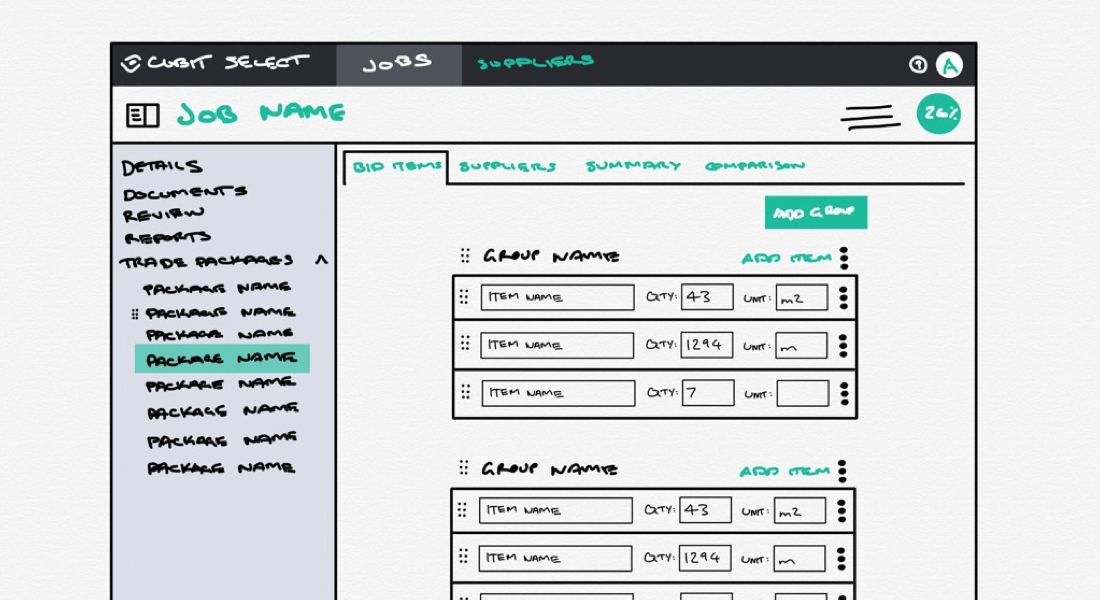 CUBIT SELECT JOBS SUPPLIERS ? A
JOB NAME 26%
DETAILS
DOCUMENTS
REVIEW
REPORTS
TRADE PACKAGES ^
PACKAGE NAME
PACKAGE NAME
PACKAGE NAME
PACKAGE NAME
PACKAGE NAME
PACKAGE NAME
PACKAGE NAME
PACKAGE NAME
BID ITEMS SUPPLIERS SUMMARY COMPARISON
ADD GROUP
GROUP NAME ADD ITEM
ITEM NAME QTY: 43 UNIT: m2
ITEM NAME QTY: 1294 UNIT: m
ITEM NAME QTY: 7 UNIT:
GROUP NAME ADD ITEM
ITEM NAME QTY: 43 UNIT: m2
ITEM NAME QTY: 1294 UNIT: m